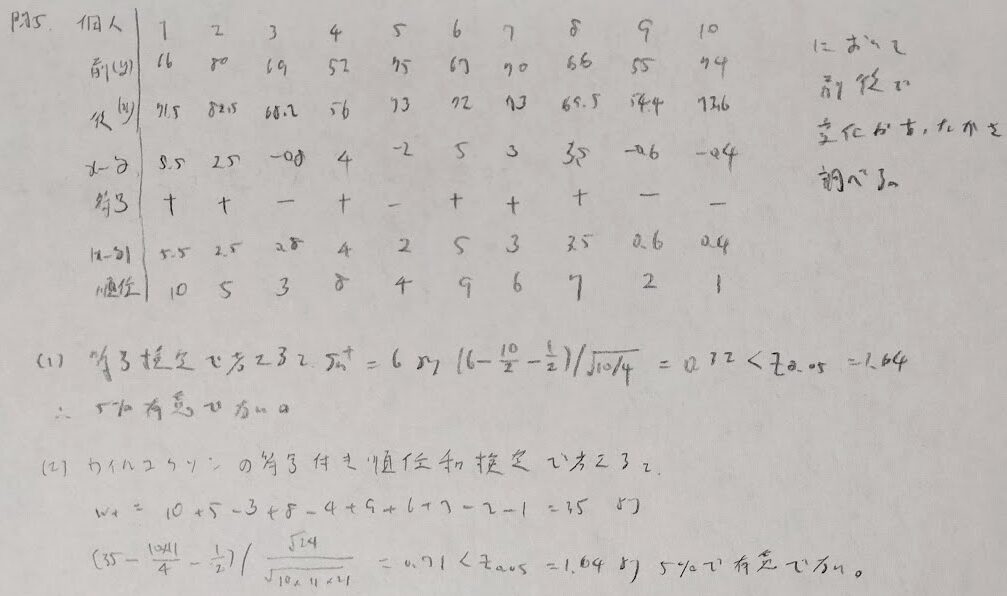 問5. 個人 1 2 3 4 5 6 7 8 9 10
前(y) 66 80 69 52 75 67 70 66 55 74
後(x) 71.5 82.5 68.2 56 73 72 73 69.5 54.4 73.6
x-y 5.5 2.5 -0.8 4 -2 5 3 3.5 -0.6 -0.4
符号 + + - + - + + + - -
|x-y| 5.5 2.5 0.8 4 2 5 3 3.5 0.6 0.4
順位 10 5 3 8 4 9 6 7 2 1
において
前後で
変化があったかを
調べる。
(1) 符号検定で考えると Sn+ = 6 より (6-10/2-1/2)/√10/4 = 0.32 < Z0.05 = 1.64
∴ 5%有意でない。
(2) ウィルコクソンの符号付き順位和検定で考えると、
W+ = 10+5-3+8-4+9+6+7-2-1 = 35 より
(35 - 10×11/4 - 1/2) / √24/√10×11×21 = 0.71 < Z0.05 = 1.64 より 5%で有意でない。